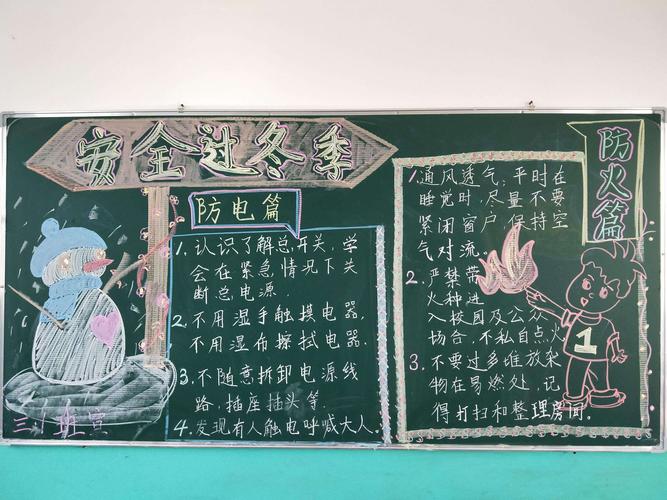 安全过冬季
防电篇
1、认识了解总开关,学
会在紧急情况下关
断总电源.
2、不用湿手触摸电器.
不用湿布擦拭电器.
3、不随意拆卸电源线
路,插座插头等.
4、发现有人触电呼喊大人。
三、1班宣
防火篇
1、通风透气,平时在
睡觉时,尽量不要
紧闭窗户,保持空
气对流。
2、严禁带
火种进
入校园及公众
场合,不私自点火
3、不要过多堆放杂
物在易燃处,记
得打扫和整理房间.
1